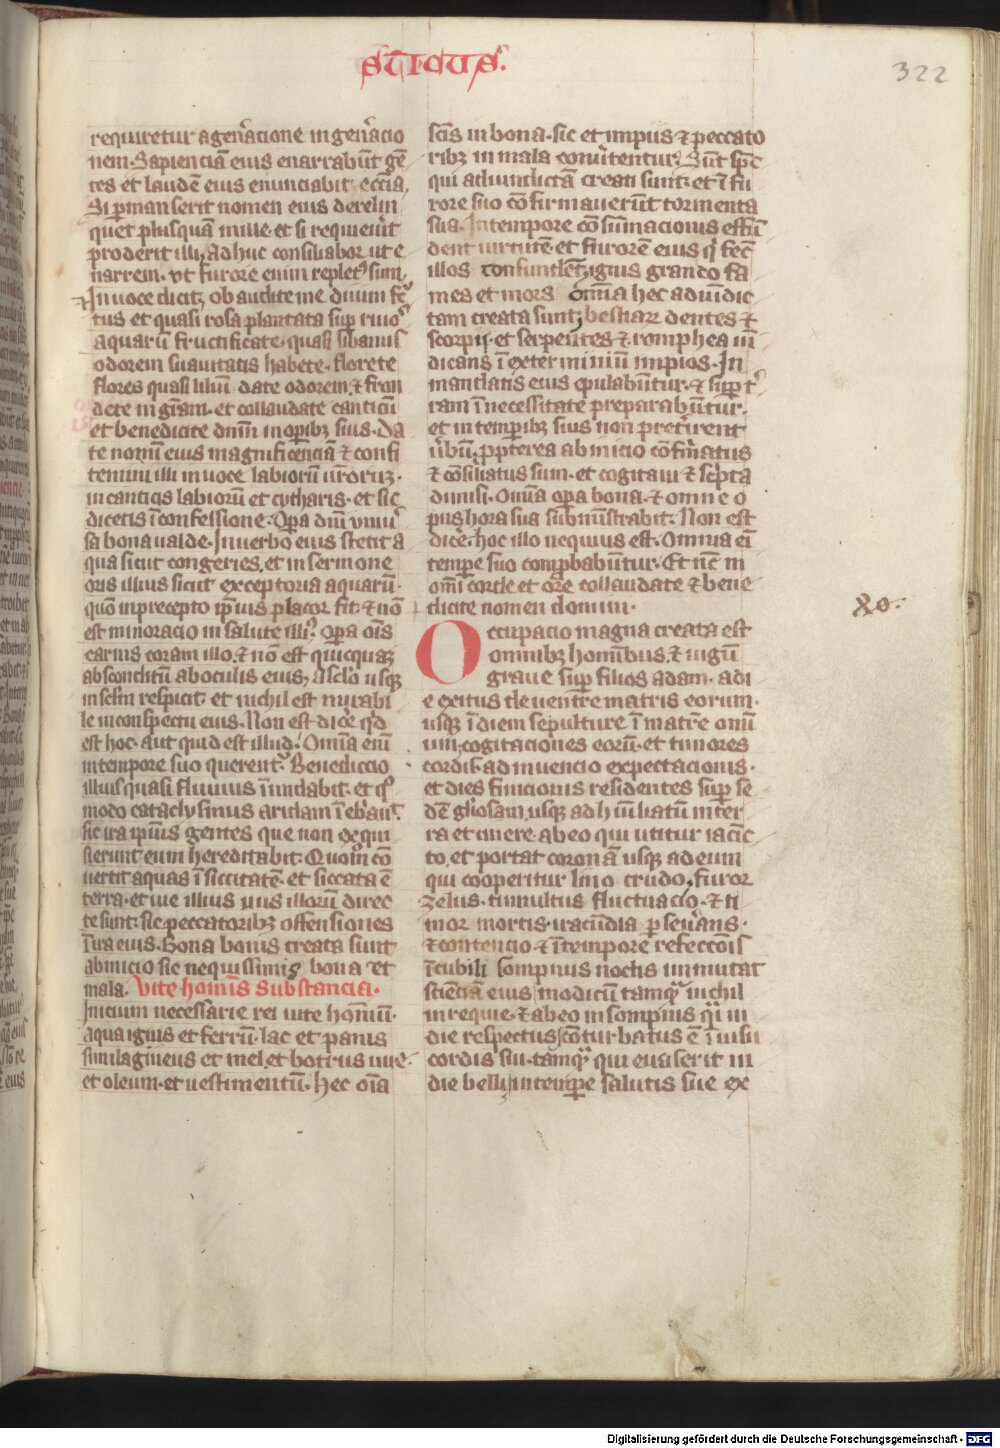 sticus.
322
requiretur a gen̄acione in gen̄acio
nem. Sapienciā eius enarrabūt gē
tes et laudē eius enunciabit eccīa,
Si ꝑmanserit nomen eius derelin
quet plusquā mille. et si requieuīt
proderit illi, Adhuc consiliabor ut e
narrem. vt furore enim repletꝰ sum.
In uoce dicit, obaudite me diuini fruc
tus et quasi rosa plantata suꝑ riuoˢ
aquarū fructificate. quasi libanus
odorem suauitatis habete. florete
flores quasi liliū. date odorem, ⁊ fron
dete in grām. et collaudate canticū
et benedicite dnm̄ in oꝑibꝫ suis. Da
te nomī eius magnificenciā ⁊ confi
temini illi in uoce labiorū uroruꝫ.
in canticis labiorū et cytharis. et sic
dicetis ī confessione. Oꝑa dnī vniuˢ
sa bona ualde. In uerbo eius stetit a
qua sicut congeries. et in sermone
oris illius sicut exceptoria aquarū.
quō in precepto ip̄ius placor fit. ⁊ nō
est minoracio in salute illiꝰ. Oꝑa oīs
carnis coram illo. ⁊ nō est quicquaꝫ
absconditū ab oculis eius, A sc̄lo usqꝫ
in sclm̄ respicit. et nichil est mirabi
le in conspectu eius. Non est dic̄e qd
est hoc. aut quid est illud. Omīa enī
in tempore suo querentᷣ. Benediccio
illius quasi fluuius īundabit. et qͦ
modo cataclysmus aridam īebͥauit.
sic ira ipīus gentes que non exqui
sierunt eum hereditabit. Quom̄ cō
uertit aquas ī siccitatē. et siccata ē
terra. et uie illius uiis illorū direc
te sunt. sic peccatoribꝫ offensiones
ī ira eius. Bona bonis creata sunt
ab inicio sic nequissimis bona et
mala. Vite hoīnis substancia.
Inicium necessarie rei uite homīū.
aqua ignis et ferrū. lac et panis
similagineus et mel. et botrus uue.
et oleum. et uestimentū. Hec oīa
sc̄is in bona. sic et impiis ⁊ peccato
ribꝫ in mala conuͥtentur. Sūt spc̄
qui ad uindictā creati sunt. et ī fu
rore suo cōfirmauerūt tormenta
sua. In tempore cōsummacionis effū
dent uirtutē. et furorē eius qͥ fec̄
illos confundēt, ignis grando fa
mes et mors omīa hec ad uīdic
tam creata sunt, bestiaꝝ dentes ⁊
scorpii. et serpentes ⁊ romphea uī
dicans ī exterminiū impios. In
mandatis eius epulabūtur. ⁊ suꝑ tᷣ
ram ī necessitate preparabūtur.
et in temꝑibꝫ suis non pretīrent
ūbū. ꝓpterea ab inicio cōfirmatus
⁊ cōsiliatus sum. et cogitaui ⁊ scͥpta
dimisi. Omīa oꝑa bona. ⁊ omne o
pus hora sua submīstrabit. Non est
dic̄e. hoc illo nequius est. Omnia eī
temꝑe suo comꝓbabūtur. Et nūc in
omī corde et ore collaudate ⁊ bene
dicite nomen domini.
Occupacio magna creata est
omnibꝫ hominibus. ⁊ iugū
graue suꝑ filios adam. a di
e exitus de uentre matris eorum.
usqꝫ ī diem sepulture ī matre omī
um, cogitaciones eorū. et timores
cordis. ad inuencio expectacionis.
et dies finicionis residentes suꝑ se
dē gliosam, usqꝫ ad hūiliatū in ter
ra et cinere. ab eo qui utitur iacīc
to, et portat coronā usqꝫ ad eum
qui cooperitur lino crudo, furor
zelus. tumultus fluctuacio. ⁊ ti
mor mortis. iracūdia ꝑseuͥans.
⁊ contencio ⁊ ī tempore refeccōīs
ī cubili sompnus noctis inmutat
scienciā eius, modicū tamqᷓ nichil
in requie. ⁊ ab eo in sompnis qͣi in
die respectus, cōturbatus ē ī uisu
cordis sui. tamqᷓ qui euaserit in
die belli, in temꝑe salutis sue ex
Digitalisierung gefördert durch die Deutsche Forschungsgemeinschaft - DFG